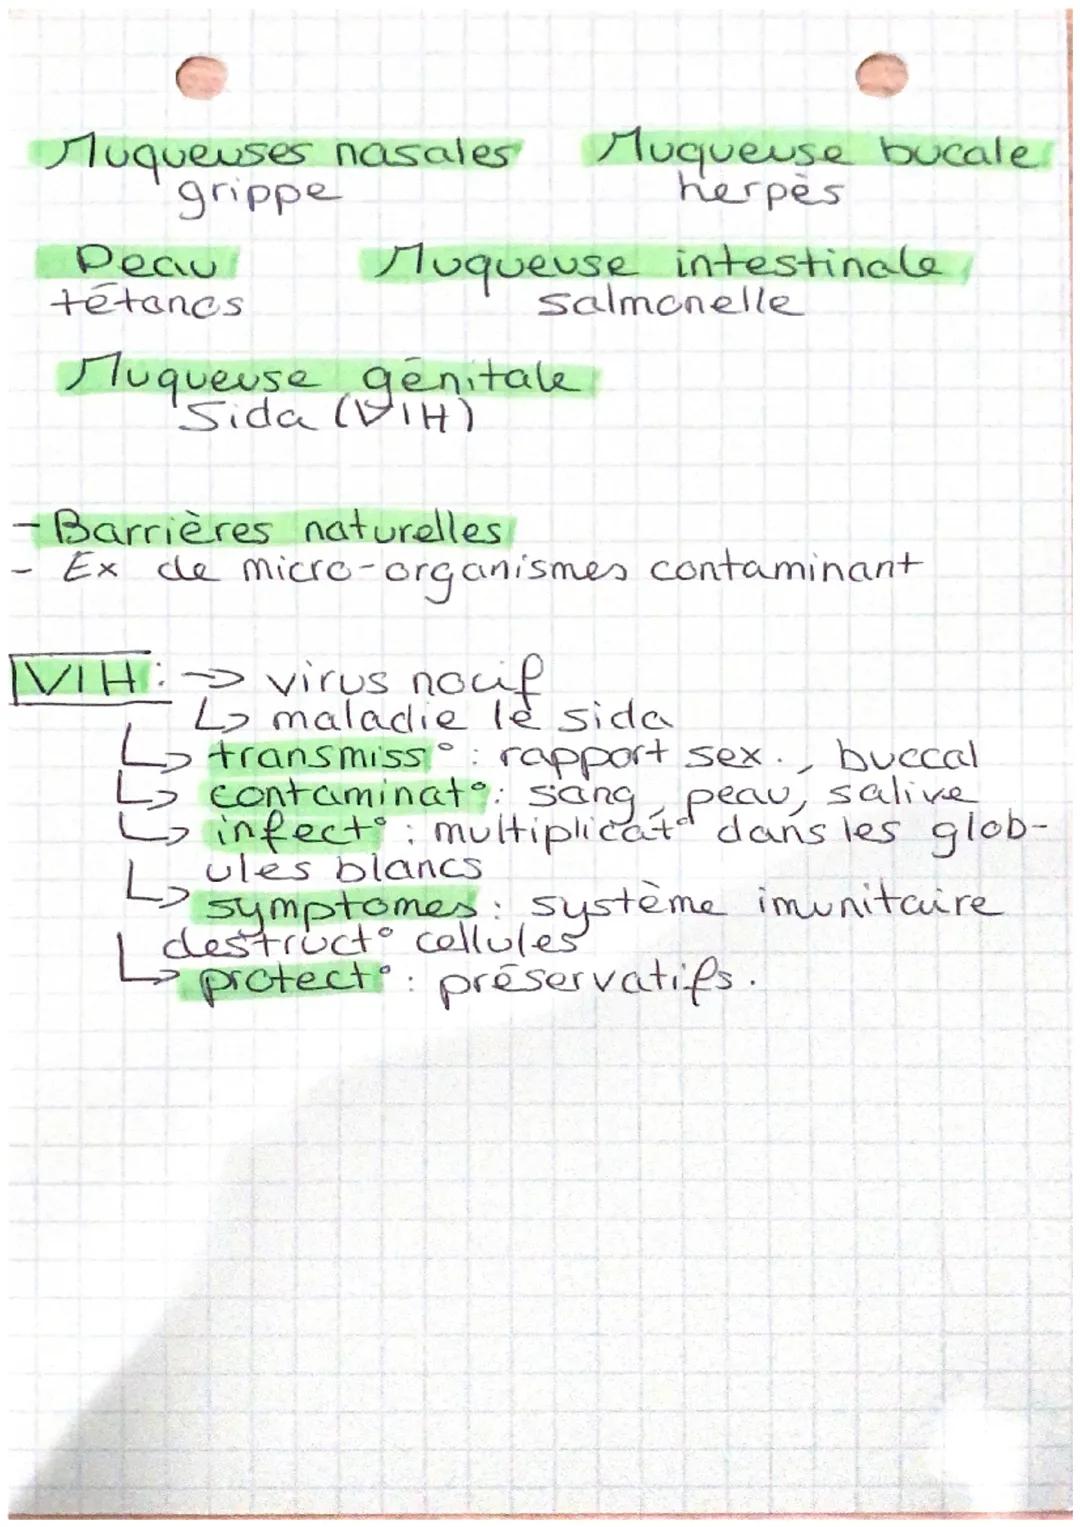 Muqueuses nasales Muqueuse bucale
grippe herpès
Peau Muqueuse intestinale
tétanos salmonelle
Muqueuse génitale
Sida (VIH)
- Barrières naturelles
- Ex de micro-organismes contaminant
VIH : → virus nocif
↳ maladie le sida
↳ transmiss° : rapport sex., buccal
↳ contaminat° : sang, peau, salive
↳ infect° : multiplicat° dans les glob-
ules blancs
↳ symptomes : système imunitaire
destruct° cellules
↳ protect° : préservatifs.